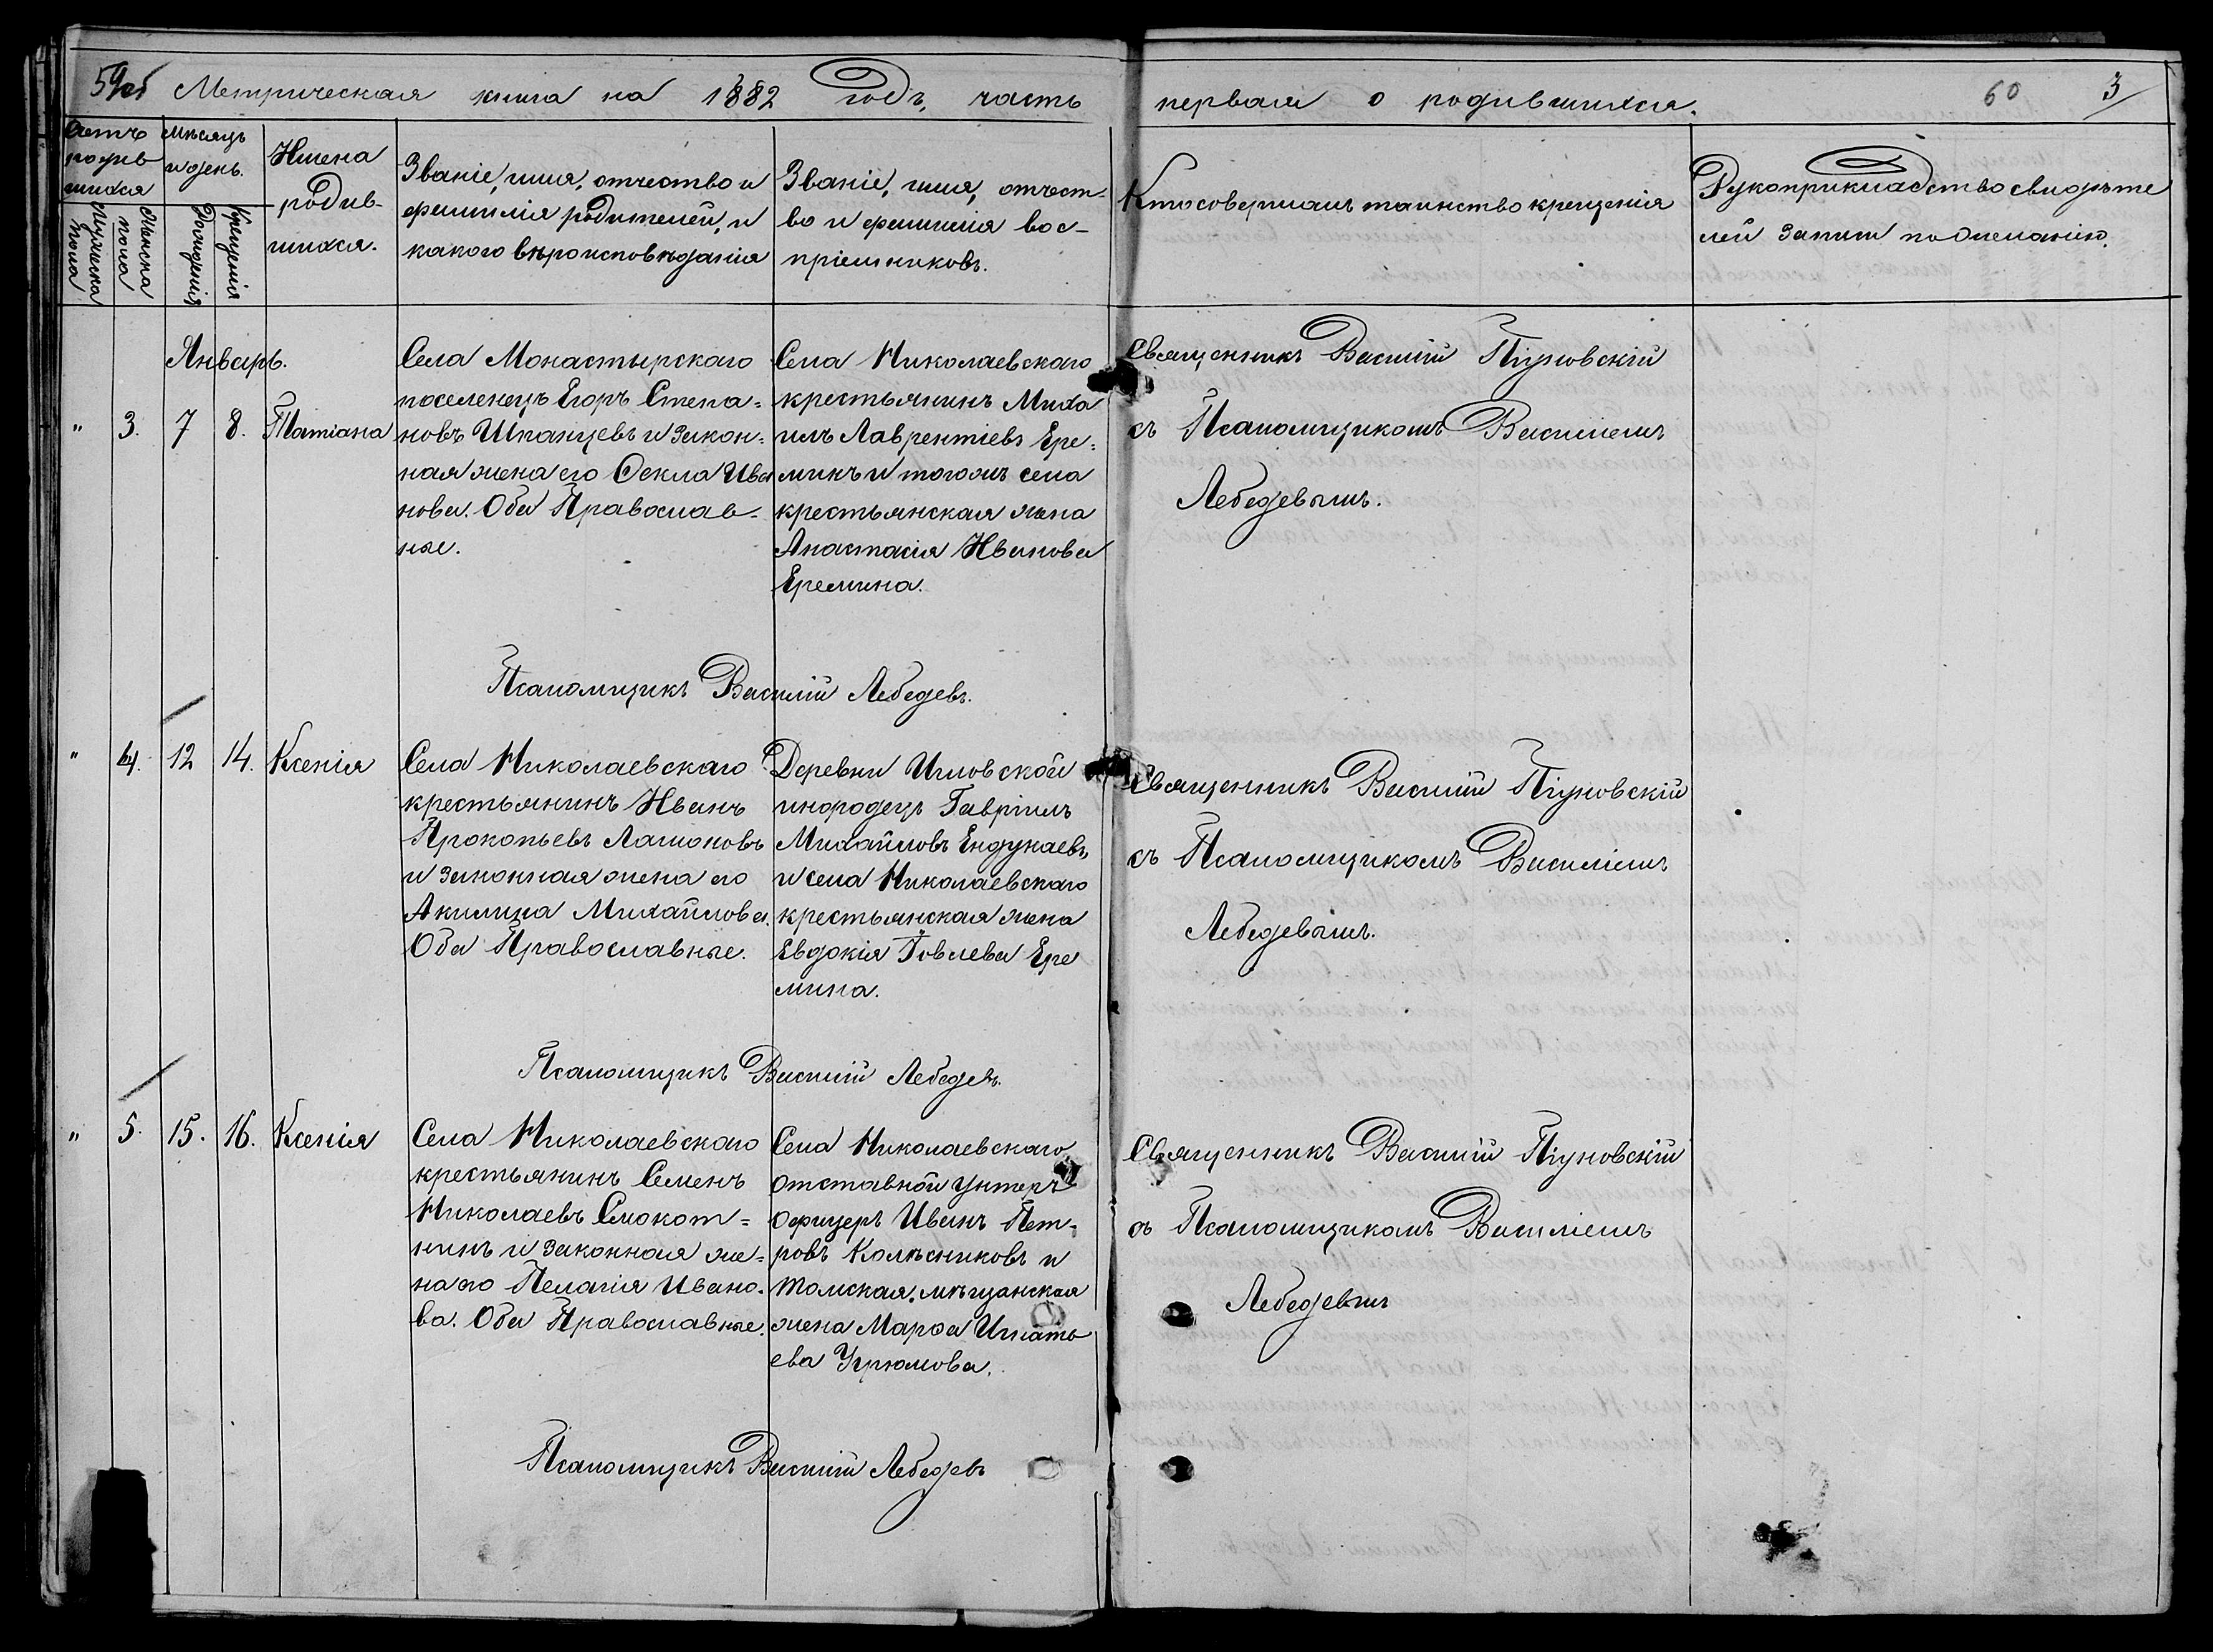 59об Метрическая книга на 1882 годъ, часть первая о родившихся. 60 3
Счетъ родив шихся
Мужеска пола
Женска пола
Мѣсяцъ и день.
Рожденія
Крещенія
Имена родив- шихся.
Званіе, имя, отчество и
фамилія родителей, и
какого вѣроисповѣданія
Званіе, имя, отчест-
во и фамилія вос-
пріемниковъ.
Кто совершалъ таинство крещенія
Рукоприкладство свидѣте
лей записи по желанію.
Январь.
" 3. 7 8. Татіана
Села Монастырскаго
поселенецъ Егоръ Степа=
новъ Шпанцевъ и закон=
ная жена его Ѳекла Ива
нова. Оба Православ-
ные.
Села Николаевскаго
крестьянинъ Миха
илъ Лаврентіевъ Ере=
минъ и тогожъ села
крестьянская жена
Анастасія Иванова
Еремина.
Священникъ Василій Піуновскій
съ Псаломщикомъ Василіемъ
Лебедевымъ.
Псаломщикъ Василій Лебедевъ.
" 4. 12 14. Ксенія
Села Николаевскаго
крестьянинъ Иванъ
Прокопьевъ Ламоновъ
и законная жена его
Акилина Михайлова.
Оба Православные.
Деревни Игловской
инородецъ Гавріилъ
Михайловъ Ендунаевъ,
и села Николаевскаго
крестьянская жена
Евдокія Іовлева Ере
мина.
Священникъ Василій Піуновскій
съ Псаломщикомъ Василіемъ
Лебедевымъ.
Псаломщикъ Василій Лебедевъ.
" 5. 15. 16. Ксенія
Села Николаевскаго
крестьянинъ Семенъ
Николаевъ Смокот=
нинъ и законная же=
на его Пелагія Ивано-
ва. Оба Православные.
Села Николаевскаго
отставной унтеръ
офицеръ Иванъ Пет-
ровъ Колѣсниковъ и
Томская мѣщанская
жена Марѳа Игнать
ева Угрюмова.
Священникъ Василій Піуновскій
съ Псаломщикомъ Василіемъ
Лебедевымъ
Псаломщикъ Василій Лебедевъ